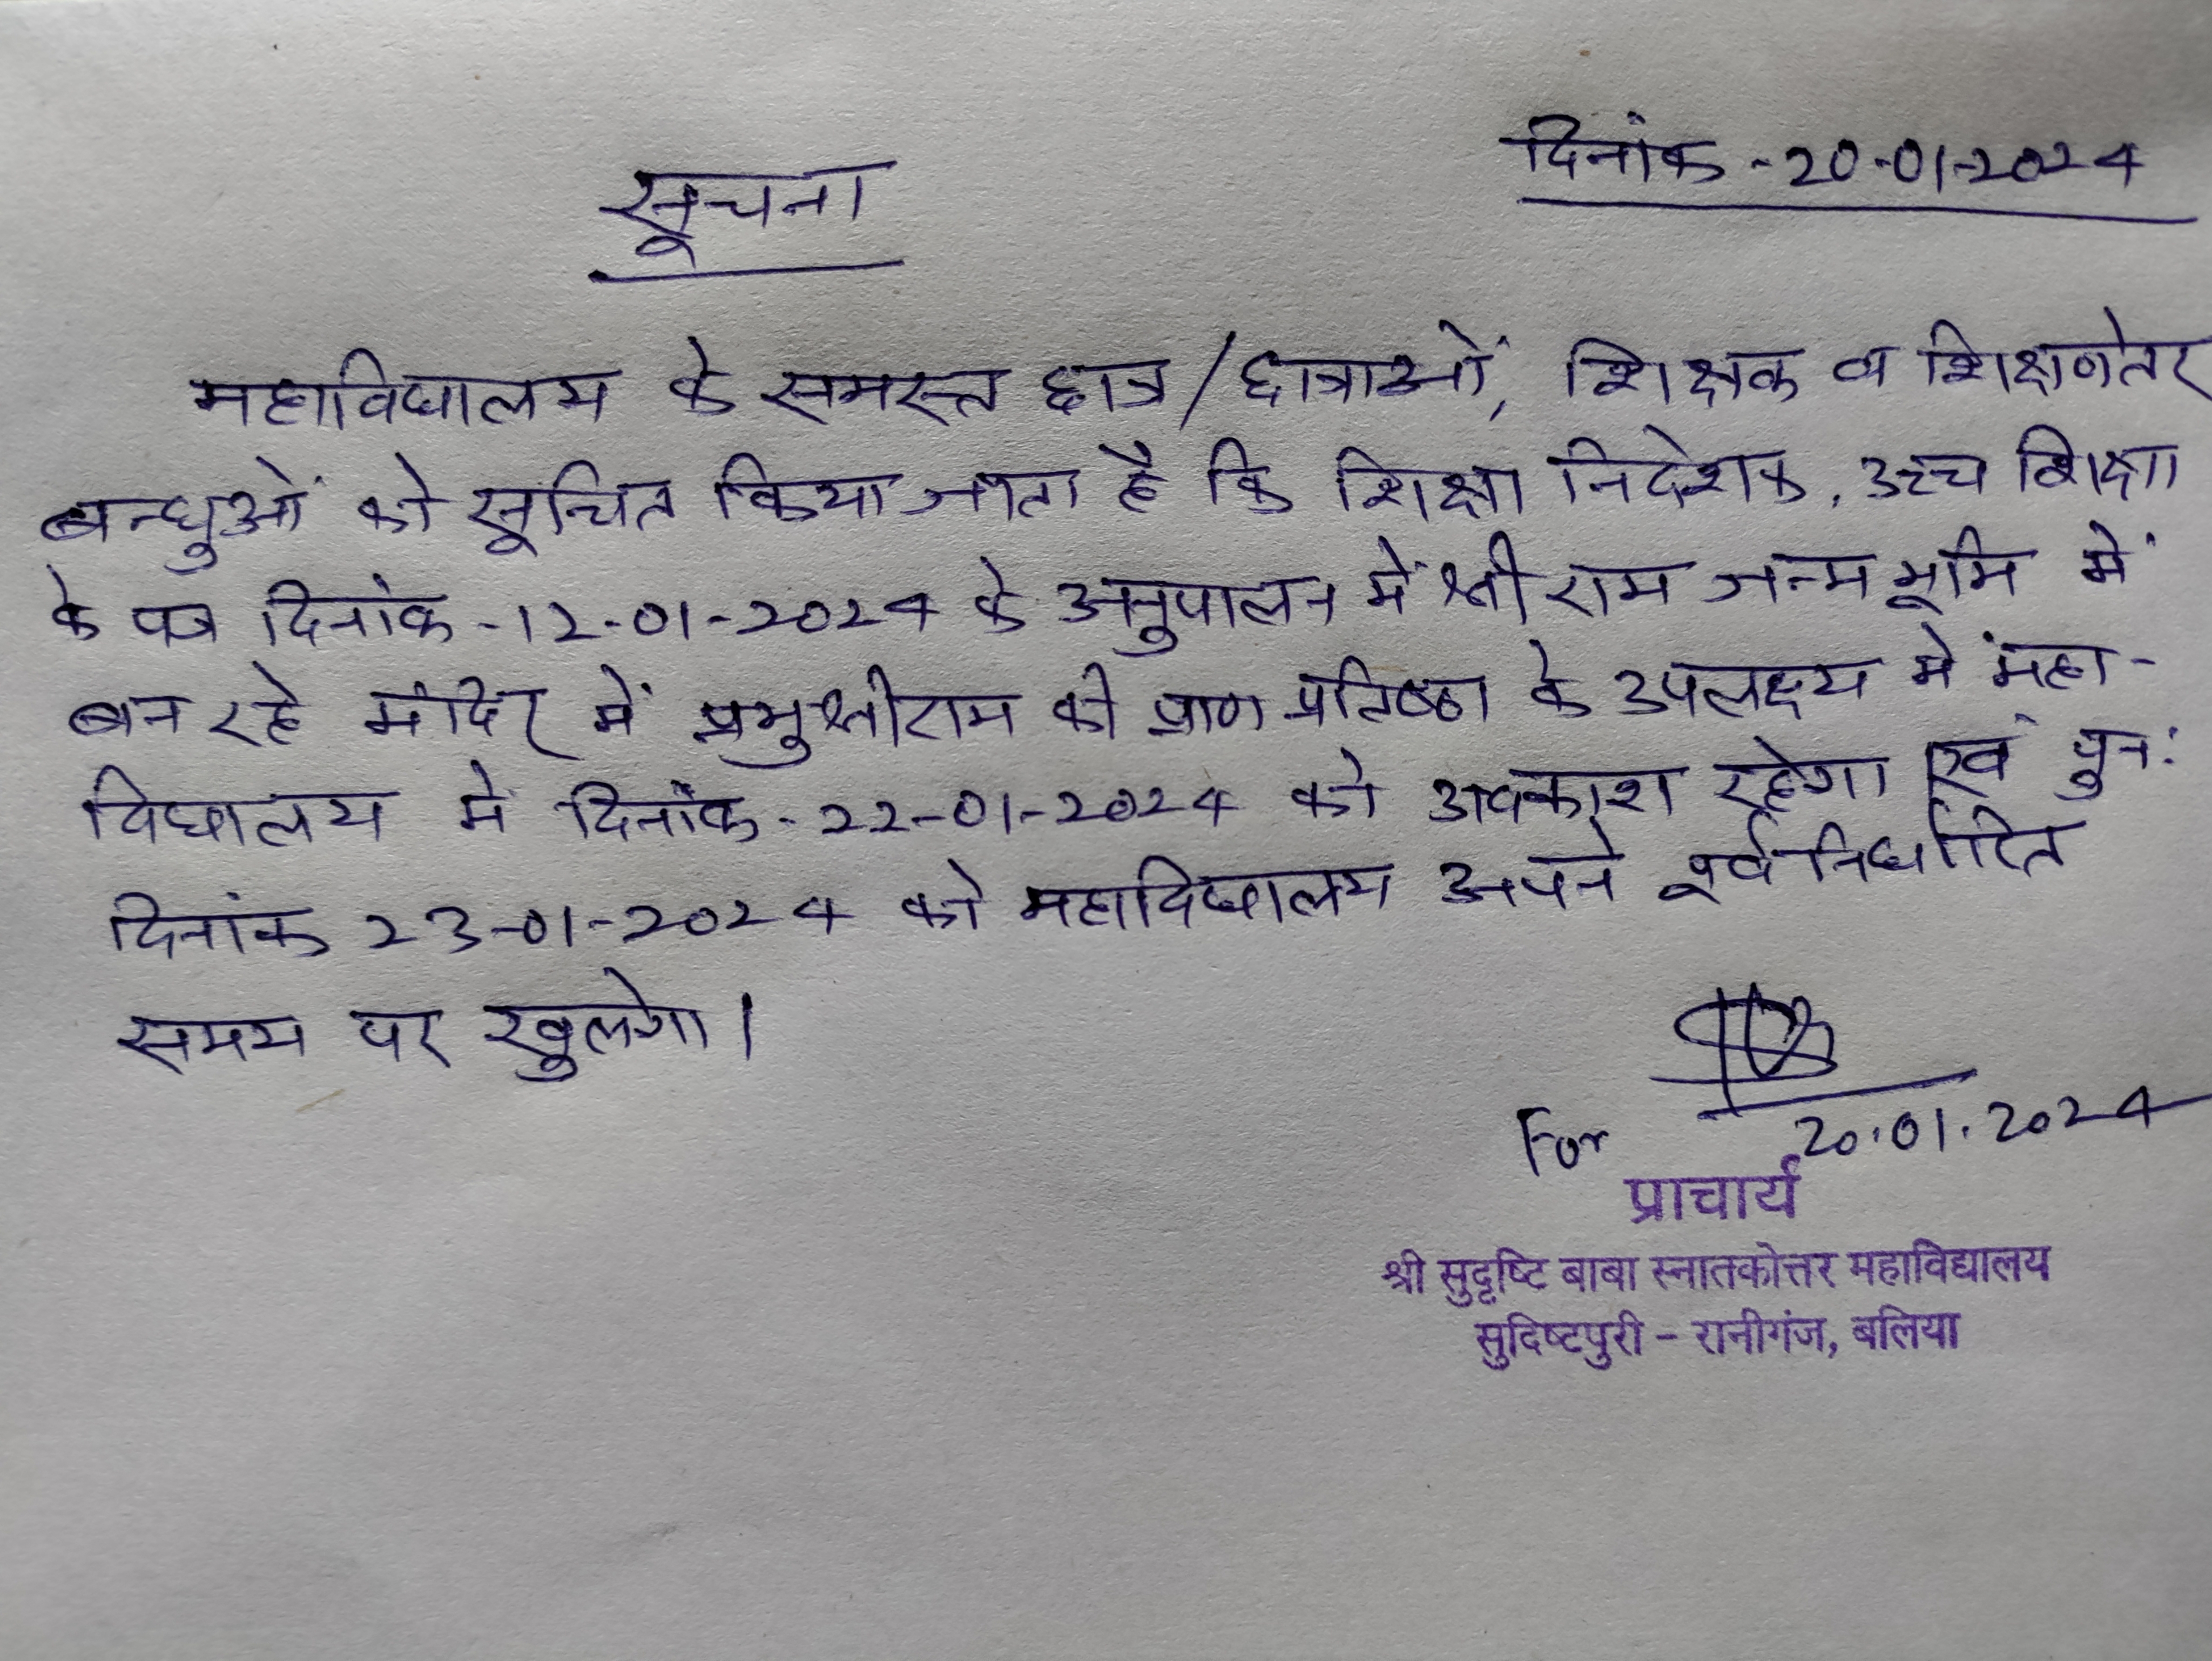 दिनांक - 20-01-2024
सूचना
महाविद्यालय के समस्त छात्र/छात्राओं, शिक्षक व शिक्षणेतर
बन्धुओं को सूचित किया जाता है कि शिक्षा निदेशक, उच्च शिक्षा
के पत्र दिनांक-12-01-2024 के अनुपालन में श्री राम जन्म भूमि में
बन रहे मंदिर में प्रभु श्रीराम की प्राण प्रतिष्ठा के उपलक्ष्य में महा-
विद्यालय में दिनांक-22-01-2024 को अवकाश रहेगा एवं पुनः
दिनांक 23-01-2024 को महाविद्यालय अपने पूर्व निर्धारित
समय पर खुलेगा।
For 20.01.2024
प्राचार्य
श्री सुदृष्टि बाबा स्नातकोत्तर महाविद्यालय
सुदिष्टपुरी – रानीगंज, बलिया